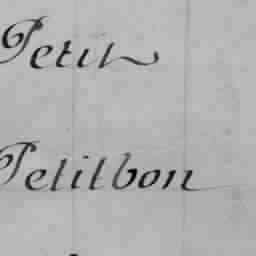 Petit
Petitbon